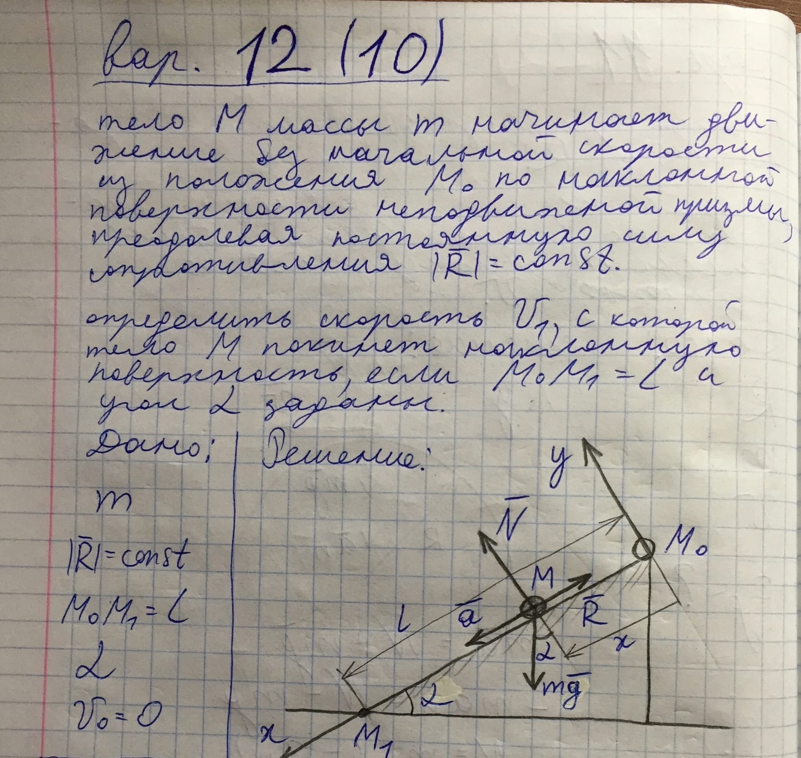 вар. 12 (10)
тело M массы m начинает дви-
жение без начальной скорости
из положения M₀ по наклонной
поверхности неподвижной призмы,
преодолевая постоянную силу
сопротивления |R̅| = const.
определить скорость V₁, с которой
тело M покинет наклонную
поверхность, если M₀M₁ = L и
угол α заданы.
Дано:
m
|R̅| = const
M₀M₁ = L
α
V₀ = 0
Решение:
y
N̅
M₀
M
a̅
R̅
l
α
x
mg̅
α
x
M₁